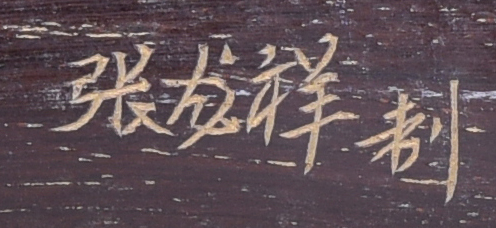 张发祥制